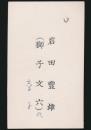 岩田豊雄
(獅子文六)